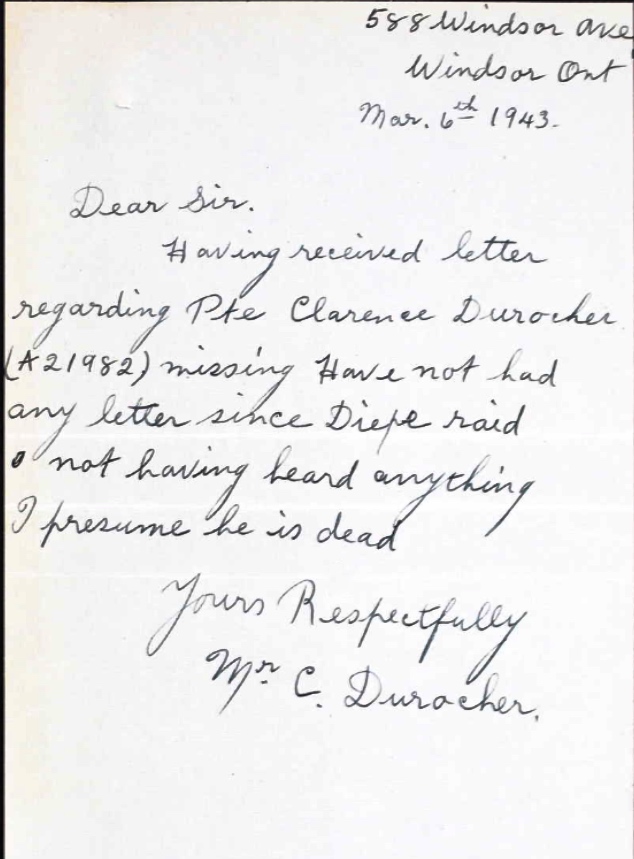 588 Windsor Ave
Windsor Ont
Mar. 6th 1943.
Dear Sir.
Having received letter
regarding Pte Clarence Durocher
(A21982) missing Have not had
any letter since Diepe raid
not having heard anything
I presume he is dead
Yours Respectfully
Mr. C. Durocher.